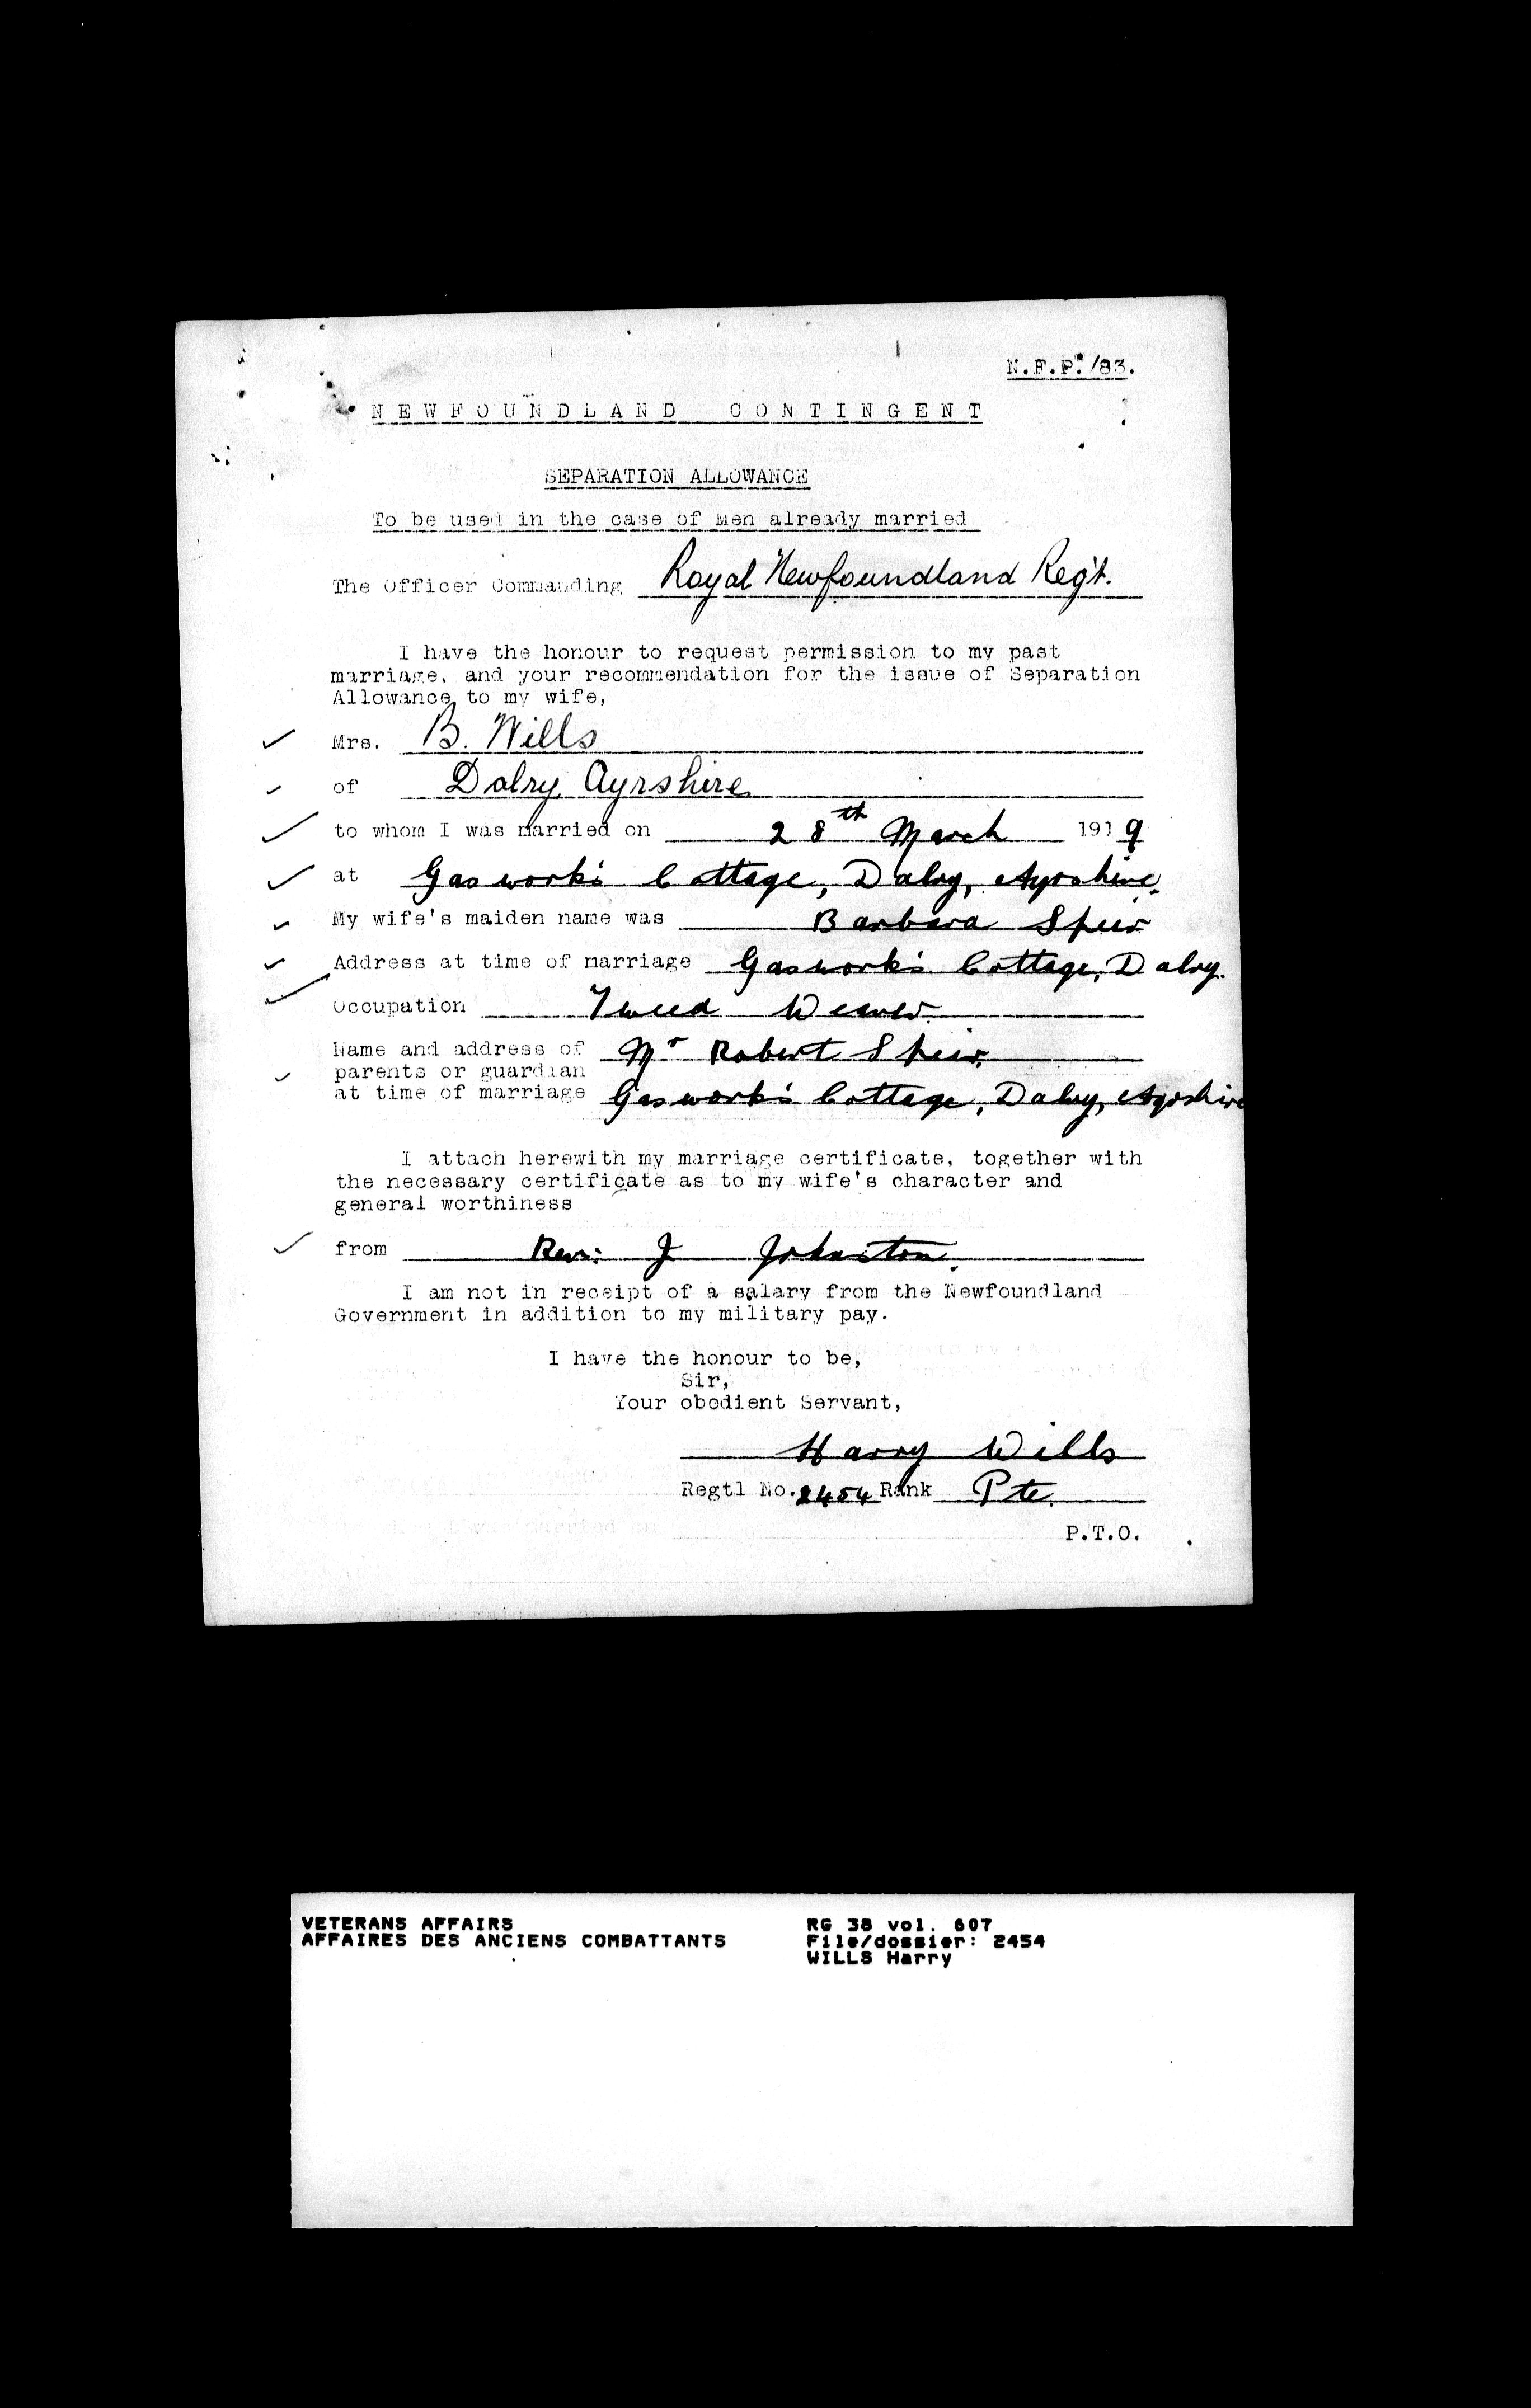 N.F.P./83.
NEWFOUNDLAND CONTINGENT
SEPARATION ALLOWANCE
To be used in the case of Men already married
The Officer Commanding Royal Newfoundland Reg't.
I have the honour to request permission to my past
marriage, and your recommendation for the issue of Separation
Allowance to my wife,
Mrs. B. Wills
of Dalry, Ayrshire
to whom I was married on 28th March 1919
at Gaswork's Cottage, Dalry, Ayrshire.
My wife's maiden name was Barbara Speir
Address at time of marriage Gaswork's Cottage, Dalry.
Occupation Tweed Weaver.
Name and address of Mr Robert Speir.
parents or guardian
at time of marriage Gaswork's Cottage, Dalry, Ayrshire
I attach herewith my marriage certificate, together with
the necessary certificate as to my wife's character and
general worthiness
from Rev: J Johnston.
I am not in receipt of a salary from the Newfoundland
Government in addition to my military pay.
I have the honour to be,
Sir,
Your obedient Servant,
Harry Wills
Regtl No. 2454 Rank Pte.
P.T.O.
VETERANS AFFAIRS RG 38 vol. 607
AFFAIRES DES ANCIENS COMBATTANTS File/dossier: 2454
WILLS Harry